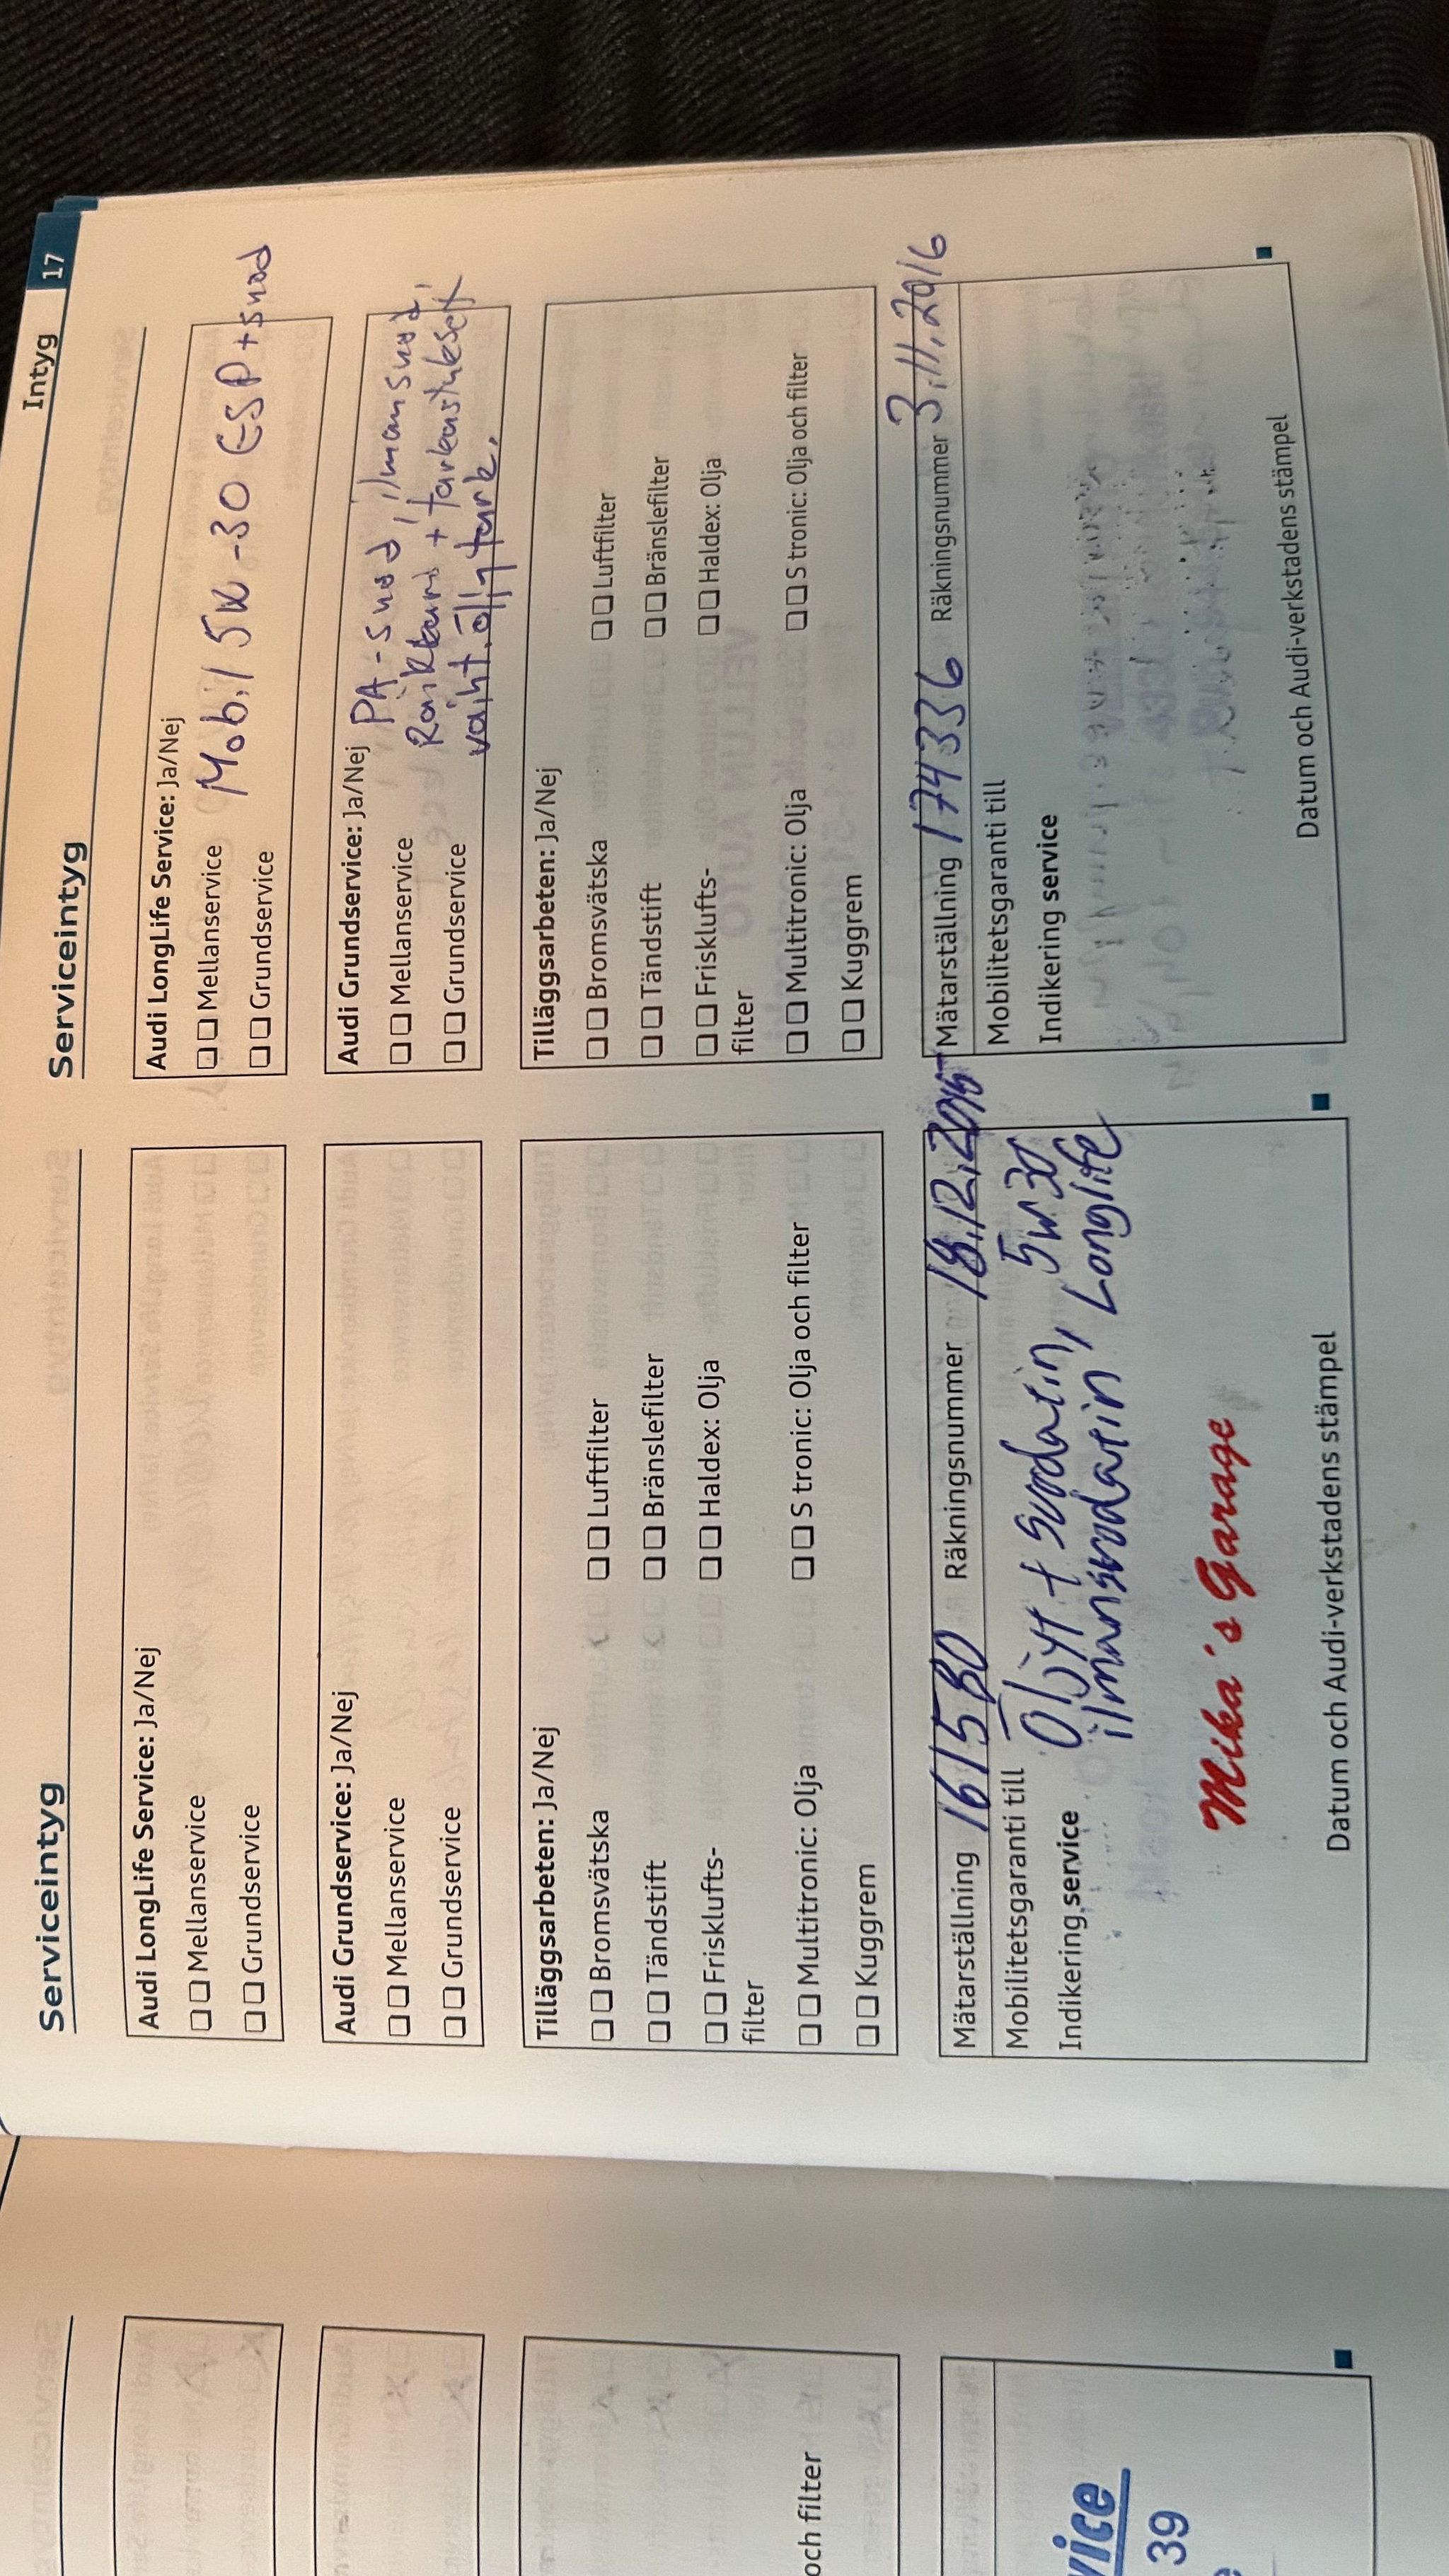 Intyg 17
Serviceintyg
Audi LongLife Service: Ja/Nej
Mellanservice
Grundservice
Audi Grundservice: Ja/Nej
Mellanservice
Grundservice
Tilläggsarbeten: Ja/Nej
Bromsvätska Luftfilter
Tändstift Bränslefilter
Frisklufts- Haldex: Olja
filter
Multitronic: Olja S tronic: Olja och filter
Kuggrem
Mätarställning 161580 Räkningsnummer 18.12.2015
Mobilitetsgaranti till Öljyt + suodatin, 5w30
Indikering service ilmansuodatin, Longlife
Mika's Garage
Datum och Audi-verkstadens stämpel
Serviceintyg
Audi LongLife Service: Ja/Nej
Mellanservice Mobil 5W-30 ESP + suod
Grundservice
Audi Grundservice: Ja/Nej PA-suod, ilmansuod,
Mellanservice Raikkaani + tarkastukset
Grundservice vaiht.öljy tark.
Tilläggsarbeten: Ja/Nej
Bromsvätska Luftfilter
Tändstift Bränslefilter
Frisklufts- Haldex: Olja
filter
Multitronic: Olja S tronic: Olja och filter
Kuggrem
Mätarställning 174336 Räkningsnummer 3.11.2016
Mobilitetsgaranti till
Indikering service
Datum och Audi-verkstadens stämpel
och filter
vice
39